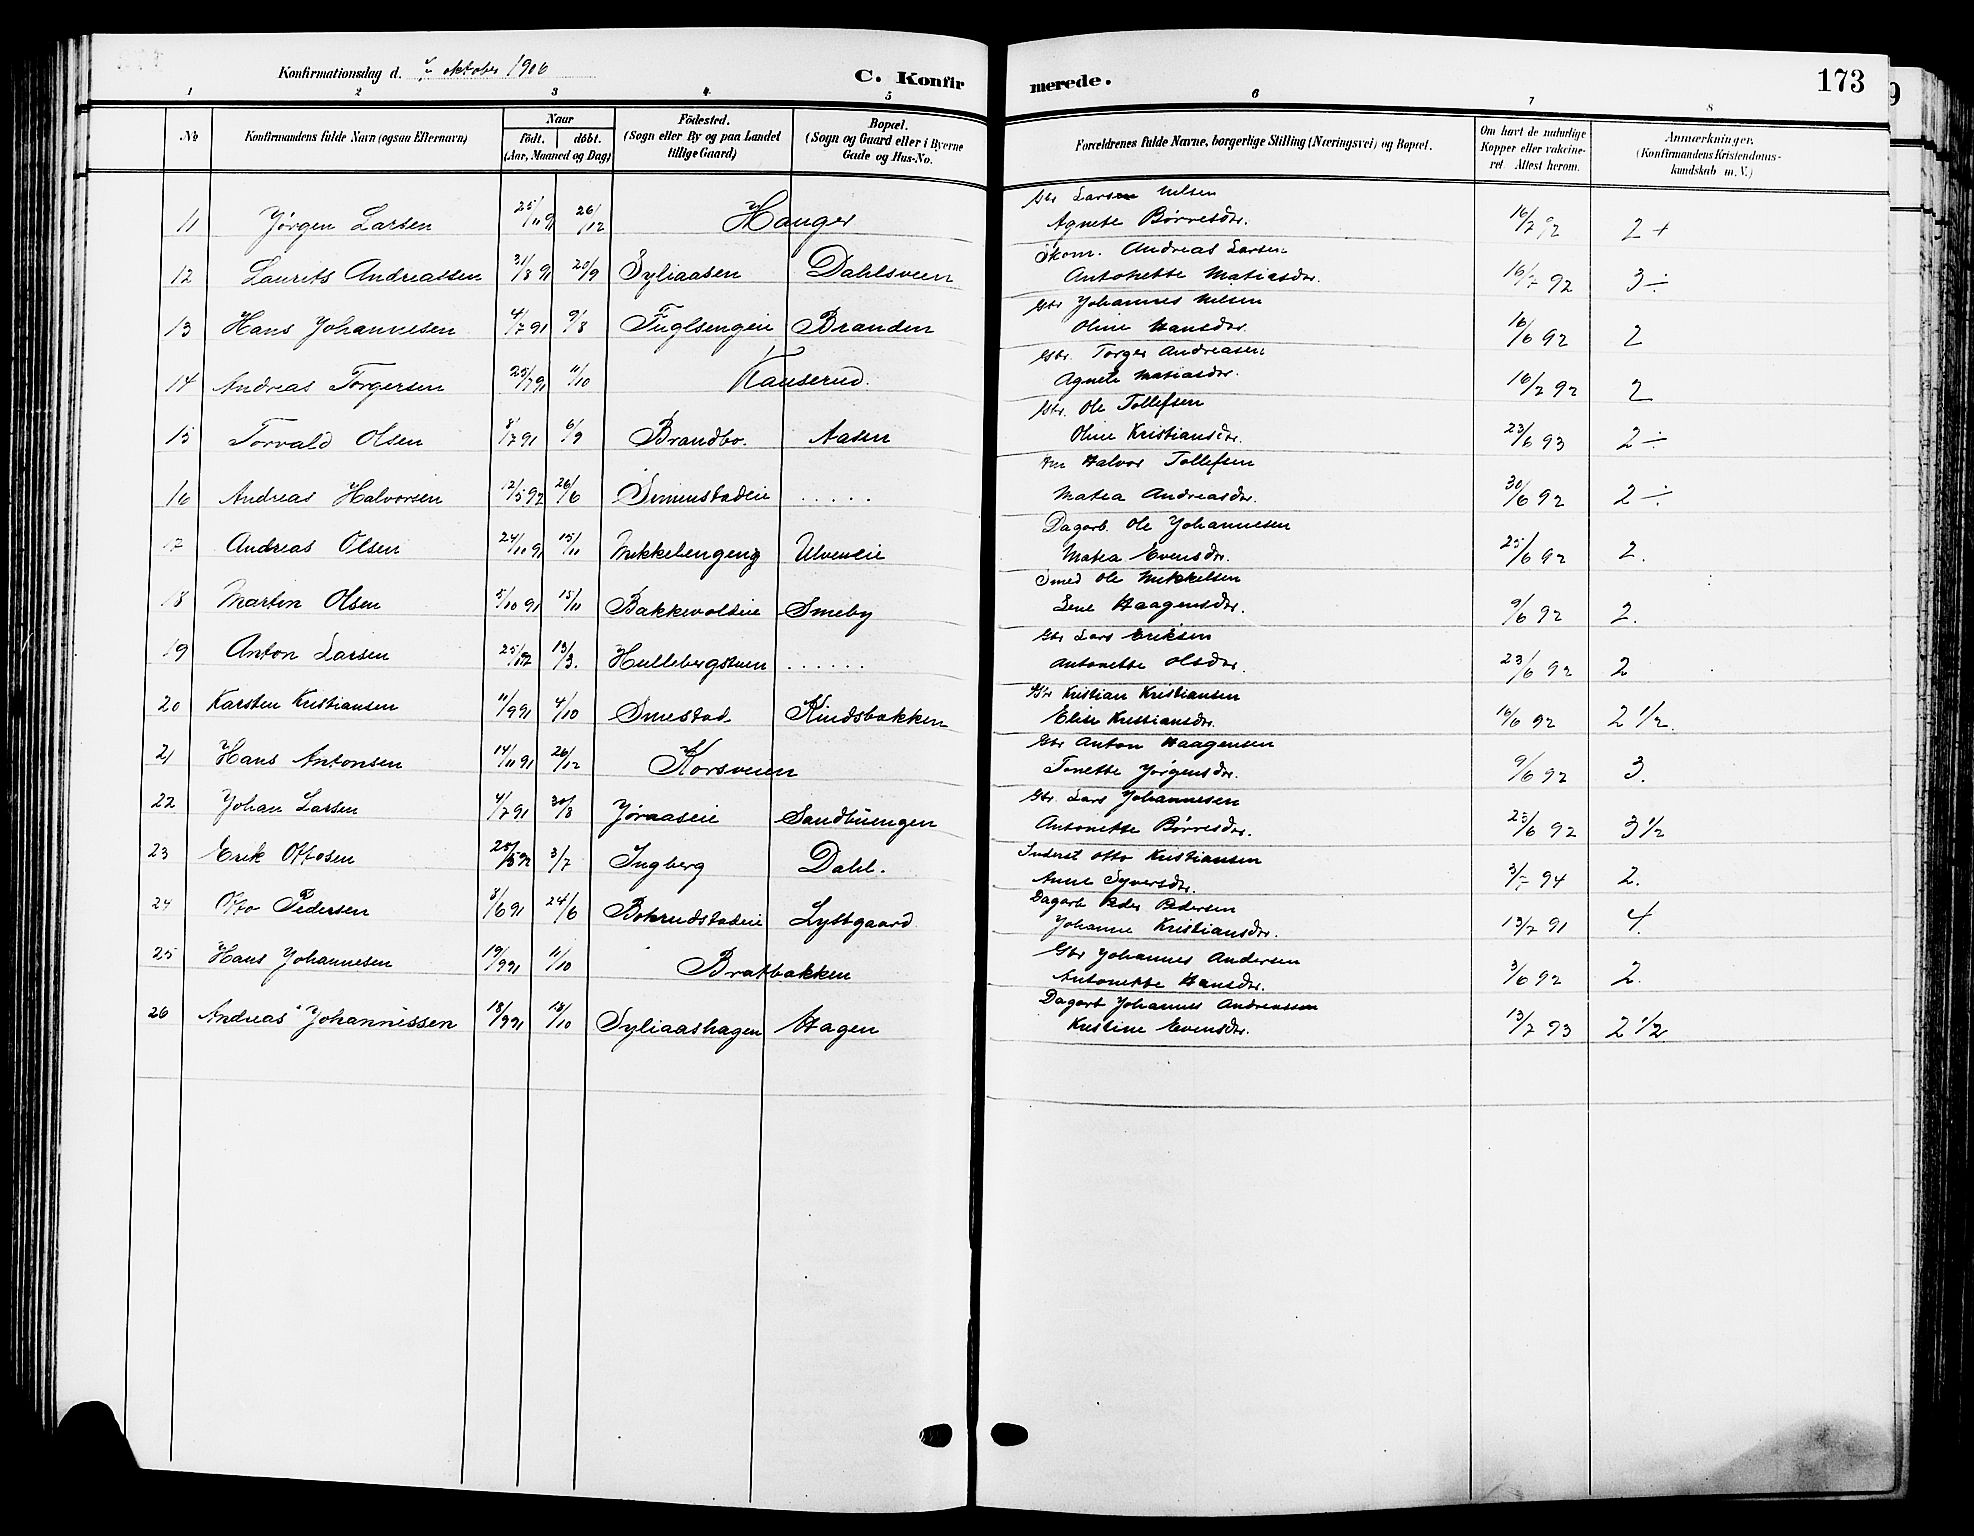 Konfirmationsdag d. 7/ oktober 1906
C. Konfirmerede.
173
1 2 3 4 5 6 7 8
№
Konfirmandens fulde Navn (ogsaa Efternavn)
Naar
født. døbt.
(Aar, Maaned og Dag)
Fødested.
(Sogn eller By og paa Landet
tillige Gaard)
Bopæl.
(Sogn og Gaard eller i Byerne
Gade og Hus-No.
Forældrenes fulde Navne, borgerlige Stilling (Næringsvei) og Bopæl.
Om havt de naturlige
Kopper eller vakcine-
ret. Attest herom.
Anmærkninger.
(Konfirmandens Kristendoms-
kundskab m. V.)
Gbr Larsen Nilsen
11 Jørgen Larsen 25/11 91 26/12 Hanger Agnete Børresdr. 16/7 92 2 +
Skom. Andreas Larsen
12 Laurits Andreassen 31/8 91 20/9 Syliaasen Dahlsveen Antonette Matiasdr. 16/7 92 3 ÷
Gbr Johannes Nilsen
13 Hans Johannesen 4/7 91 9/8 Fuglsengeie Branden Oline Hansdr. 16/6 92 2
Gbr. Torger Andreasen
14 Andreas Torgersen 25/7 91 11/10 Kauserud. Agnete Matiasdr. 16/7 92 2
Gbr. Ole Tollefsen
15 Torvald Olsen 8/7 91 6/9 Brandbo. Aasen Oline Kristiansdr. 23/6 93 2 ÷
Halvor Tollefsen
16 Andreas Halvorsen 12/5 92 26/6 Simenstadeie ..... Matea Andreasdr. 30/6 92 2 ÷
Dagarb. Ole Johannesen
17 Andreas Olsen 24/10 91 15/11 Mikkelsengeng Ulveneie Matea Evensdr. 25/6 92 2.
Smed Ole Mikkelsen
18 Martin Olsen 5/10 91 15/11 Bakkevoldeie Smeby Lene Haagensdr. 9/6 92 2.
Gbr Lars Eriksen
19 Anton Larsen 25/1 92 13/3. Hullebergstuen ...... Antonette Olsdr. 23/6 92 2
Gbr Kristian Kristiansen
20 Karsten Kristiansen 11/9 91 4/10 Smestad Kindsbakken Elise Kristiansdr. 16/6 92 2 1/2.
Gbr Anton Haagensen
21 Hans Antonsen 14/11 91 26/12 Korsveien Tonette Jørgensdr. 9/6 92 3.
Gbr. Lars Johannesen
22 Johan Larsen 4/7 91 30/8 Jøraaseie Sandbüengen Antonette Børresdr. 23/6 92 3 1/2
Inderst Otto Kristiansen
23 Erik Ottosen 25/5 92 3/7 Ingberg Dahl. Anne Syversdr. 3/7 94 2.
Dagarb Peder Pedersen
24 Otto Pedersen 8/6 91 24/6 Bohrudstadeie Lyttgaard Johanne Kristiansdr. 13/7 91 4.
Gbr Johannes Andersen
25 Hans Johannesen 19/9 91 11/10 Bratbakken Antonette Hansdr. 3/6 92 2.
Dagarb Johannes Andreassen
26 Andreas Johannessen 18/9 91 18/10 Syliaashagen Hagen Kristine Evensdr. 13/7 93 2 1/2